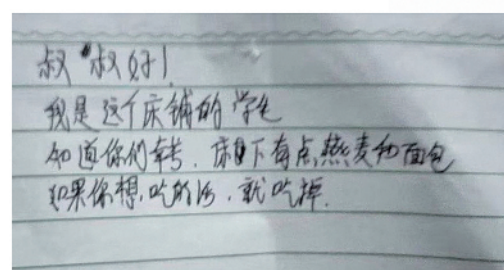 叔叔好!
我是这个床铺的学生
知道你们辛苦.床下有点燕麦和面包
如果你想.吃的话.就吃掉.